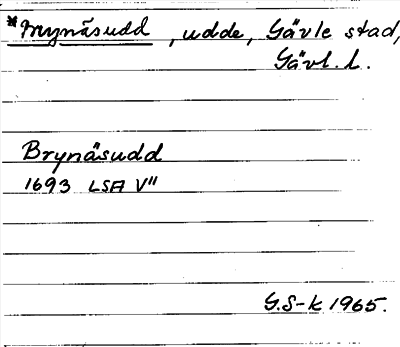 *Brynäsudd, udde, Gävle stad,
Gävl. l.
Brynäsudd
1693 LSA V"
G.S-k 1965.